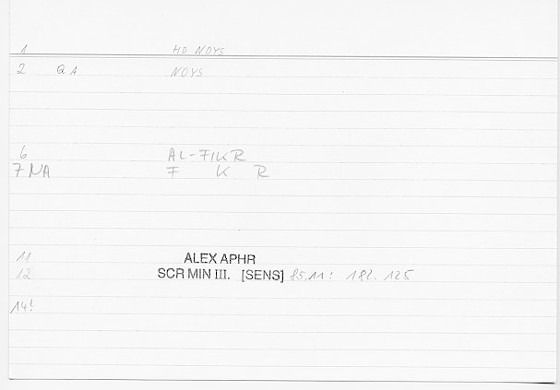 1 HO NOYS
2 QA NOYS
6 AL-FIKR
7 NA F K R
11 ALEX APHR
12 SCR MIN III. [SENS] 85,11: 182. 125
14!